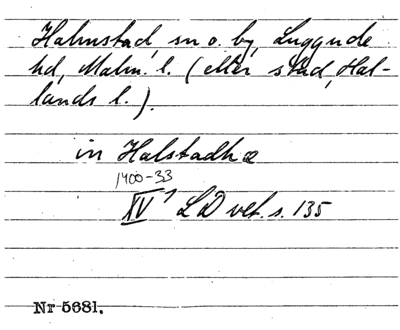 Halmstad, sn o. by, Luggude
hd, Malm. l. (eller stad, Hal-
lands l.).
in Halstadhæ
1400-33
XV¹ LD vet. s. 135
Nr 5681.